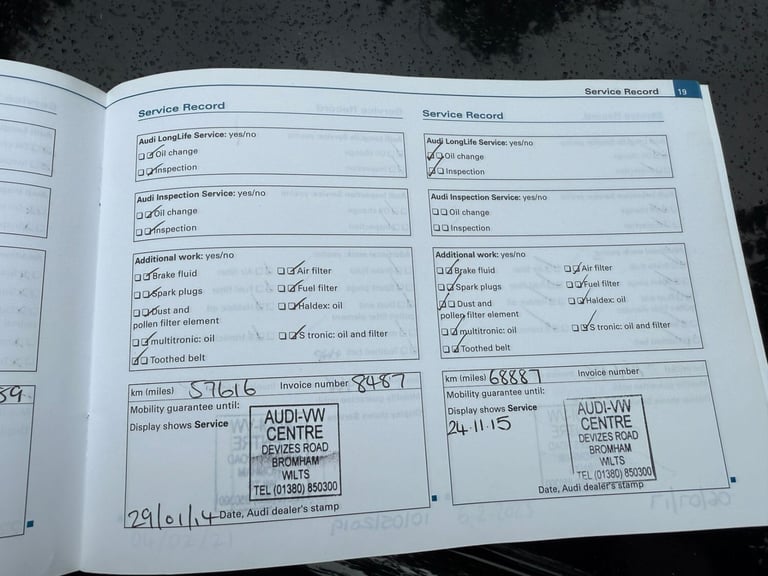 Service Record 19
Service Record
Audi LongLife Service: yes/no
Oil change
Inspection
Audi Inspection Service: yes/no
Oil change
Inspection
Additional work: yes/no
Brake fluid
Air filter
Spark plugs
Fuel filter
Dust and
pollen filter element
Haldex: oil
multitronic: oil
S tronic: oil and filter
Toothed belt
km (miles) 57616 Invoice number 8487
Mobility guarantee until:
Display shows Service
AUDI-VW
CENTRE
DEVIZES ROAD
BROMHAM
WILTS
TEL (01380) 850300
29/01/14 Date, Audi dealer's stamp
Service Record
Audi LongLife Service: yes/no
Oil change
Inspection
Audi Inspection Service: yes/no
Oil change
Inspection
Additional work: yes/no
Brake fluid
Air filter
Spark plugs
Fuel filter
Dust and
pollen filter element
Haldex: oil
multitronic: oil
S tronic: oil and filter
Toothed belt
km (miles) 68887 Invoice number
Mobility guarantee until:
Display shows Service
24.11.15
AUDI-VW
CENTRE
DEVIZES ROAD
BROMHAM
WILTS
TEL (01380) 850300
Date, Audi dealer's stamp